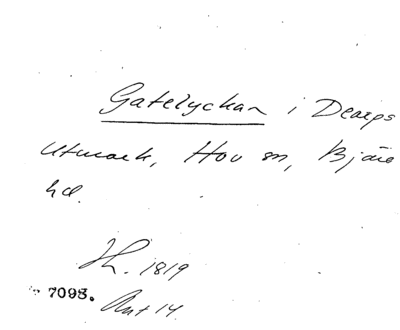 Gatelyckan i Dearps
utmark, Hov sn, Bjäre
hd.
1819
7095.
Ant 14